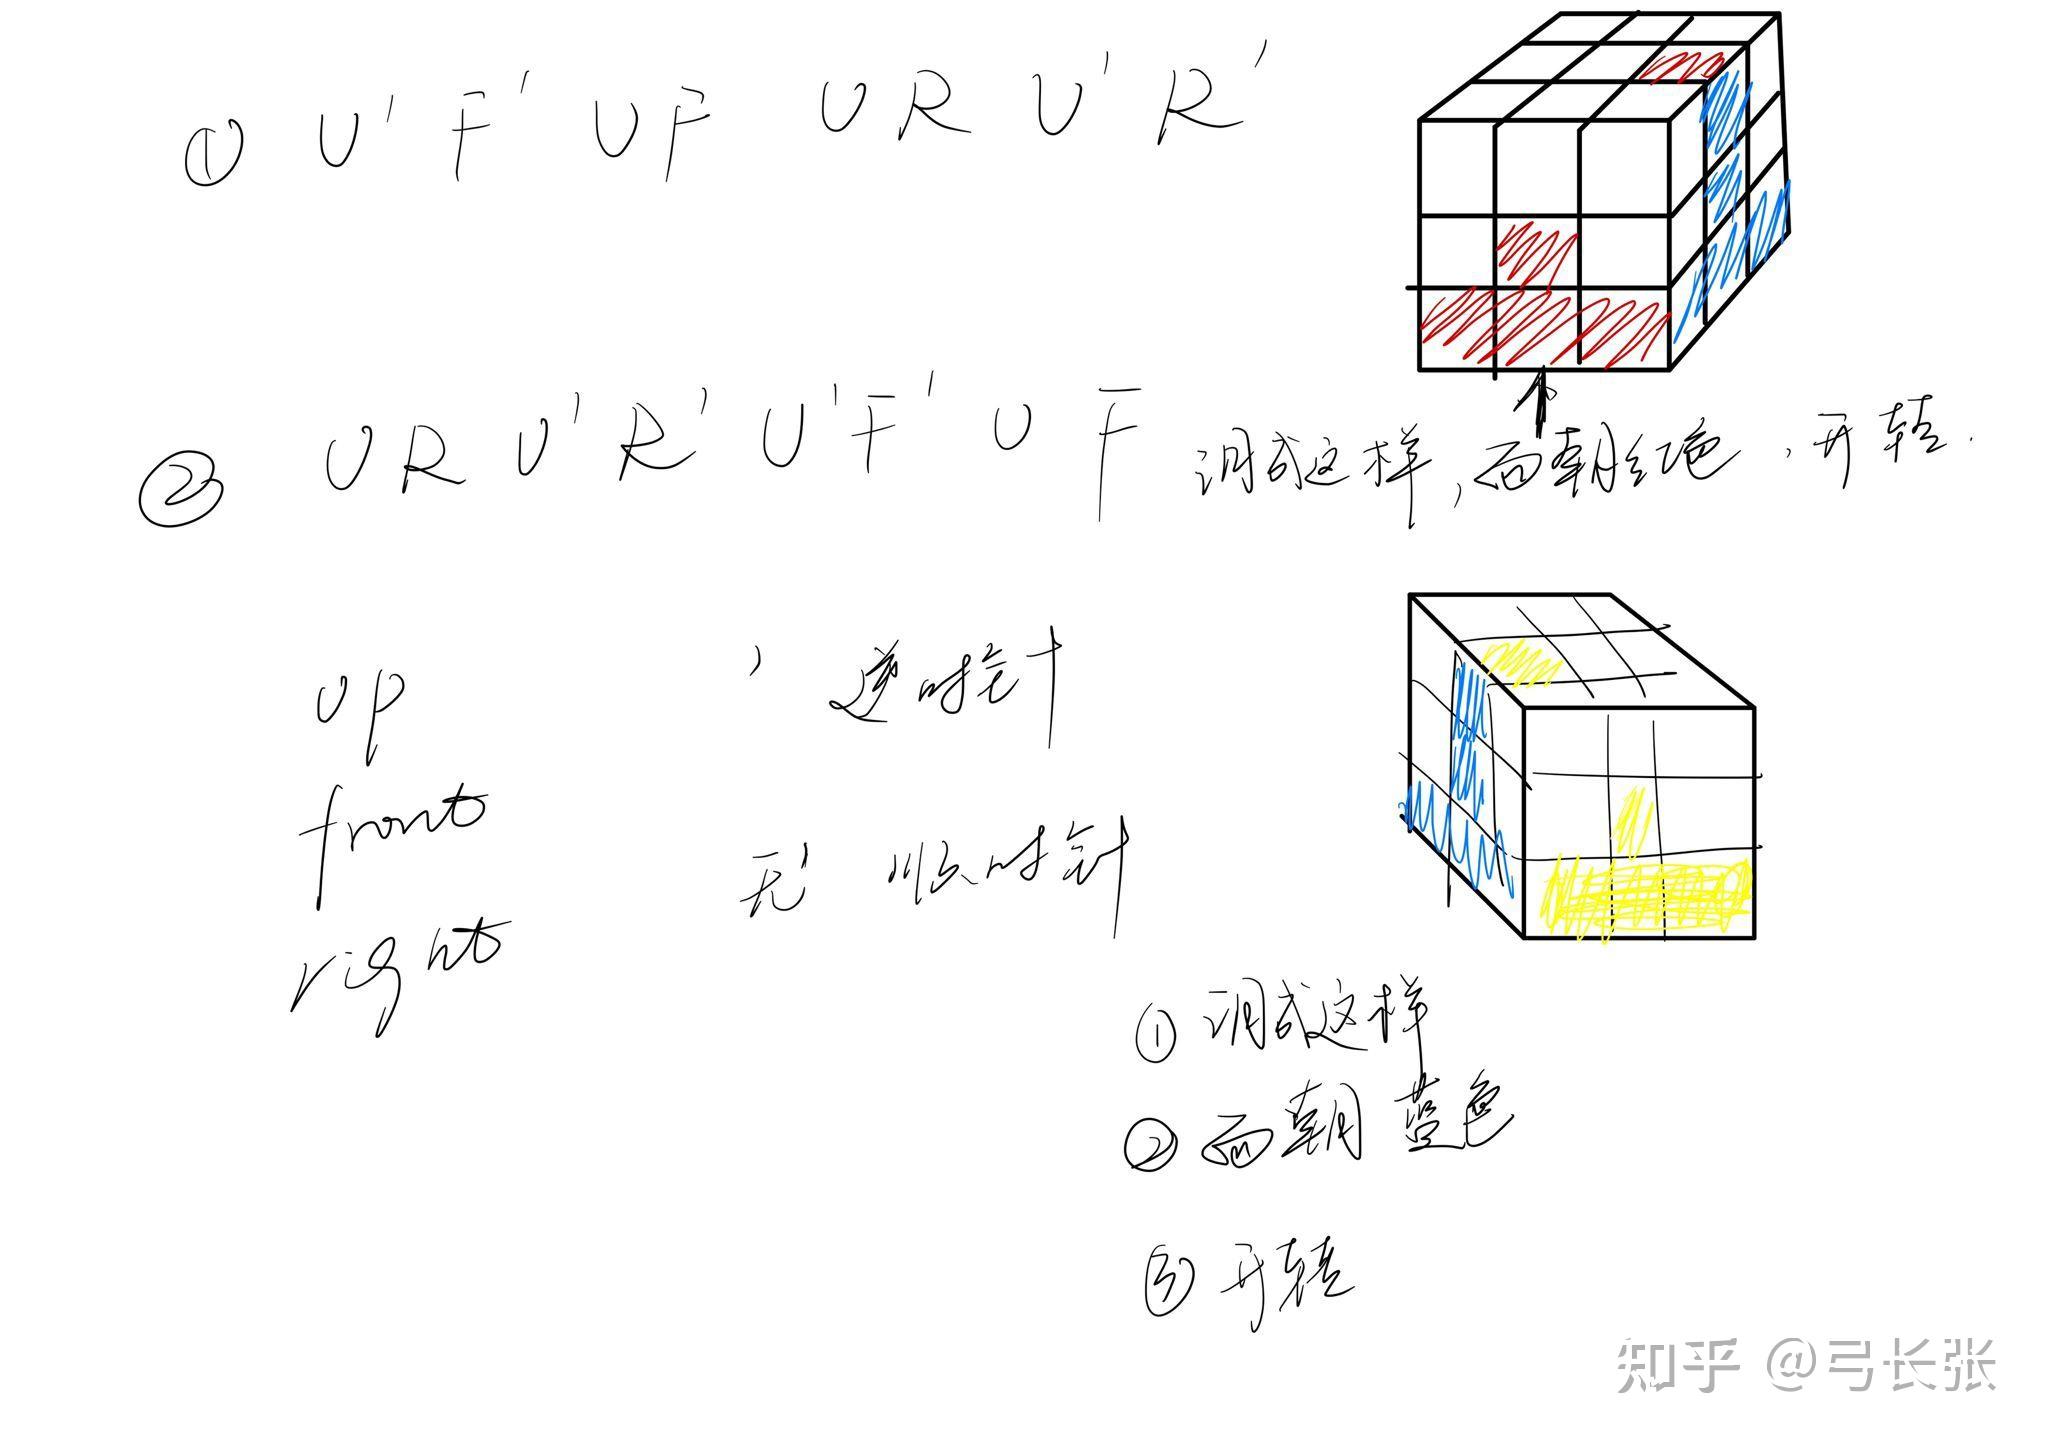 ① U' F' U F U R U' R'
② U R U' R' U' F' U F
调成这样，面朝红色，开转．
up ' 逆时针
front
无' 顺时针
right
① 调成这样
② 面朝 蓝色
③ 开转
知乎 @弓长张